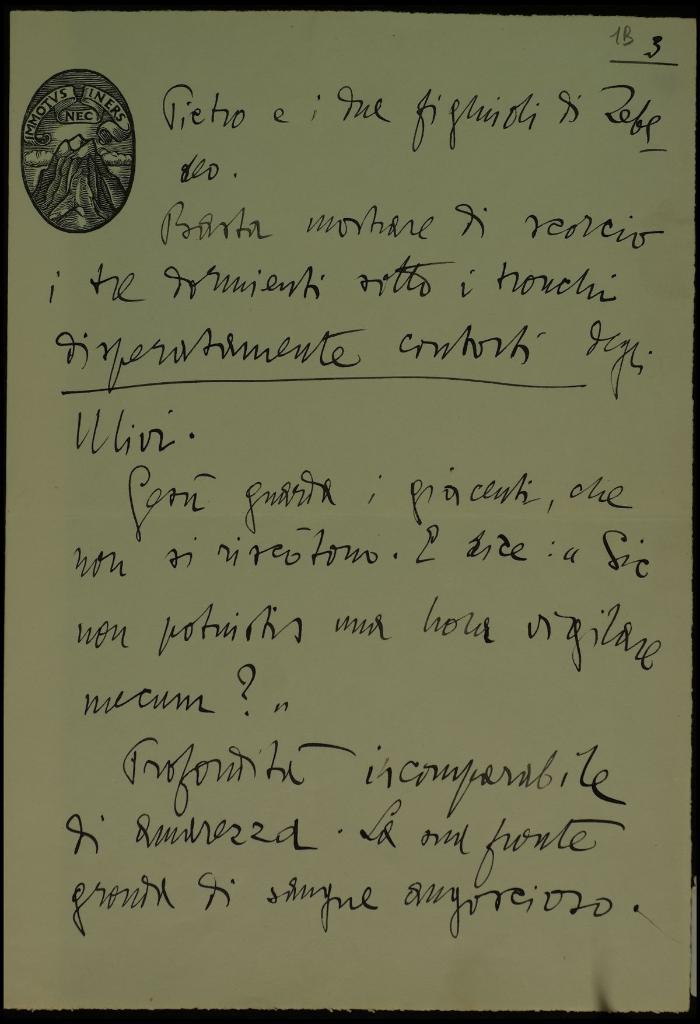 1B 3
IMMOTVS NEC INERS
Pietro e i due figliuoli di Zebe
deo.
Basta mostrare di scorcio
i tre dormienti sotto i tronchi
disperatamente contorti degli
Ulivi.
Gesù guarda i giacenti, che
non si riscòtono. E dice : « Sic
non potuistis una hora vigilare
mecum ? »
Profondità incomparabile
di amarezza. La sua fronte
gronda di sangue angoscioso.